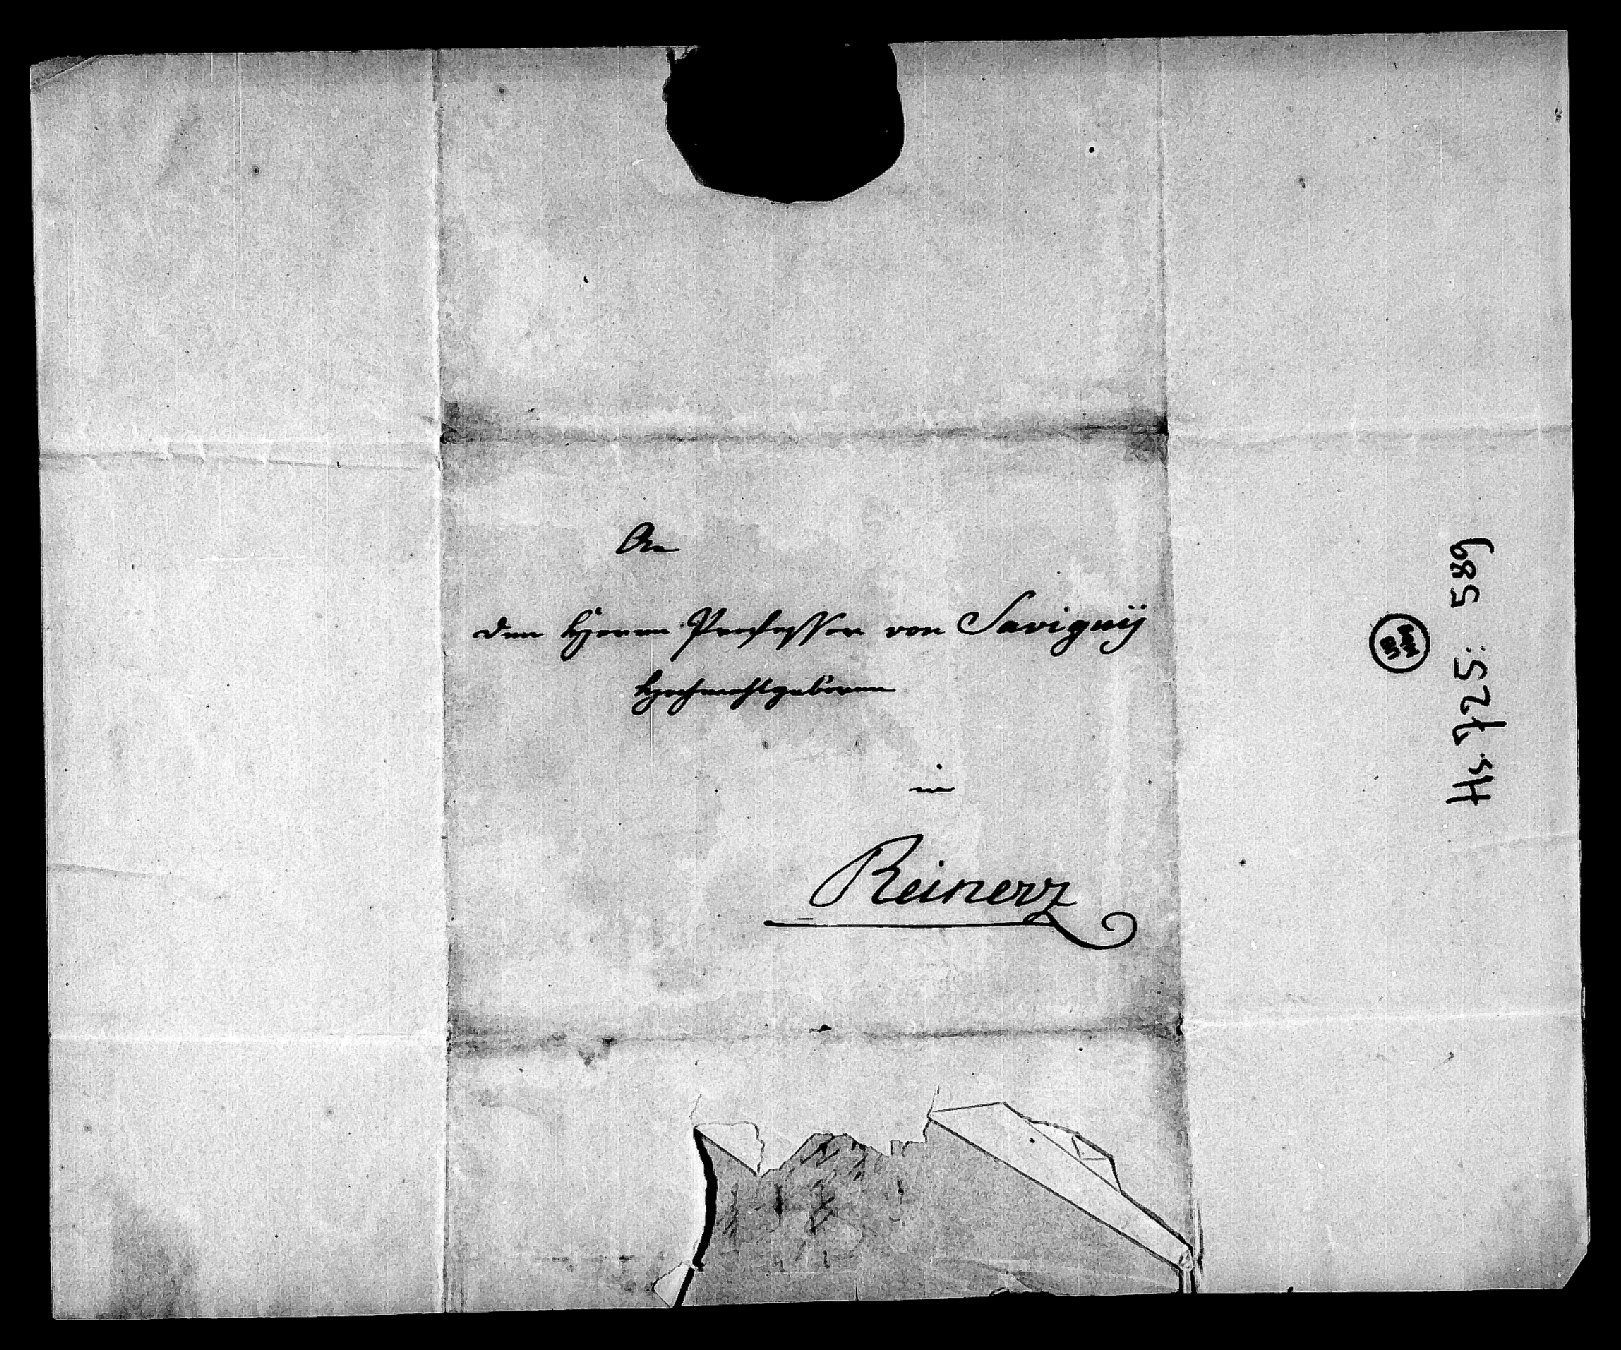 An
den Herrn Professor von Savigny
Hochwohlgeboren
in
Reinerz
Hs. 725: 589